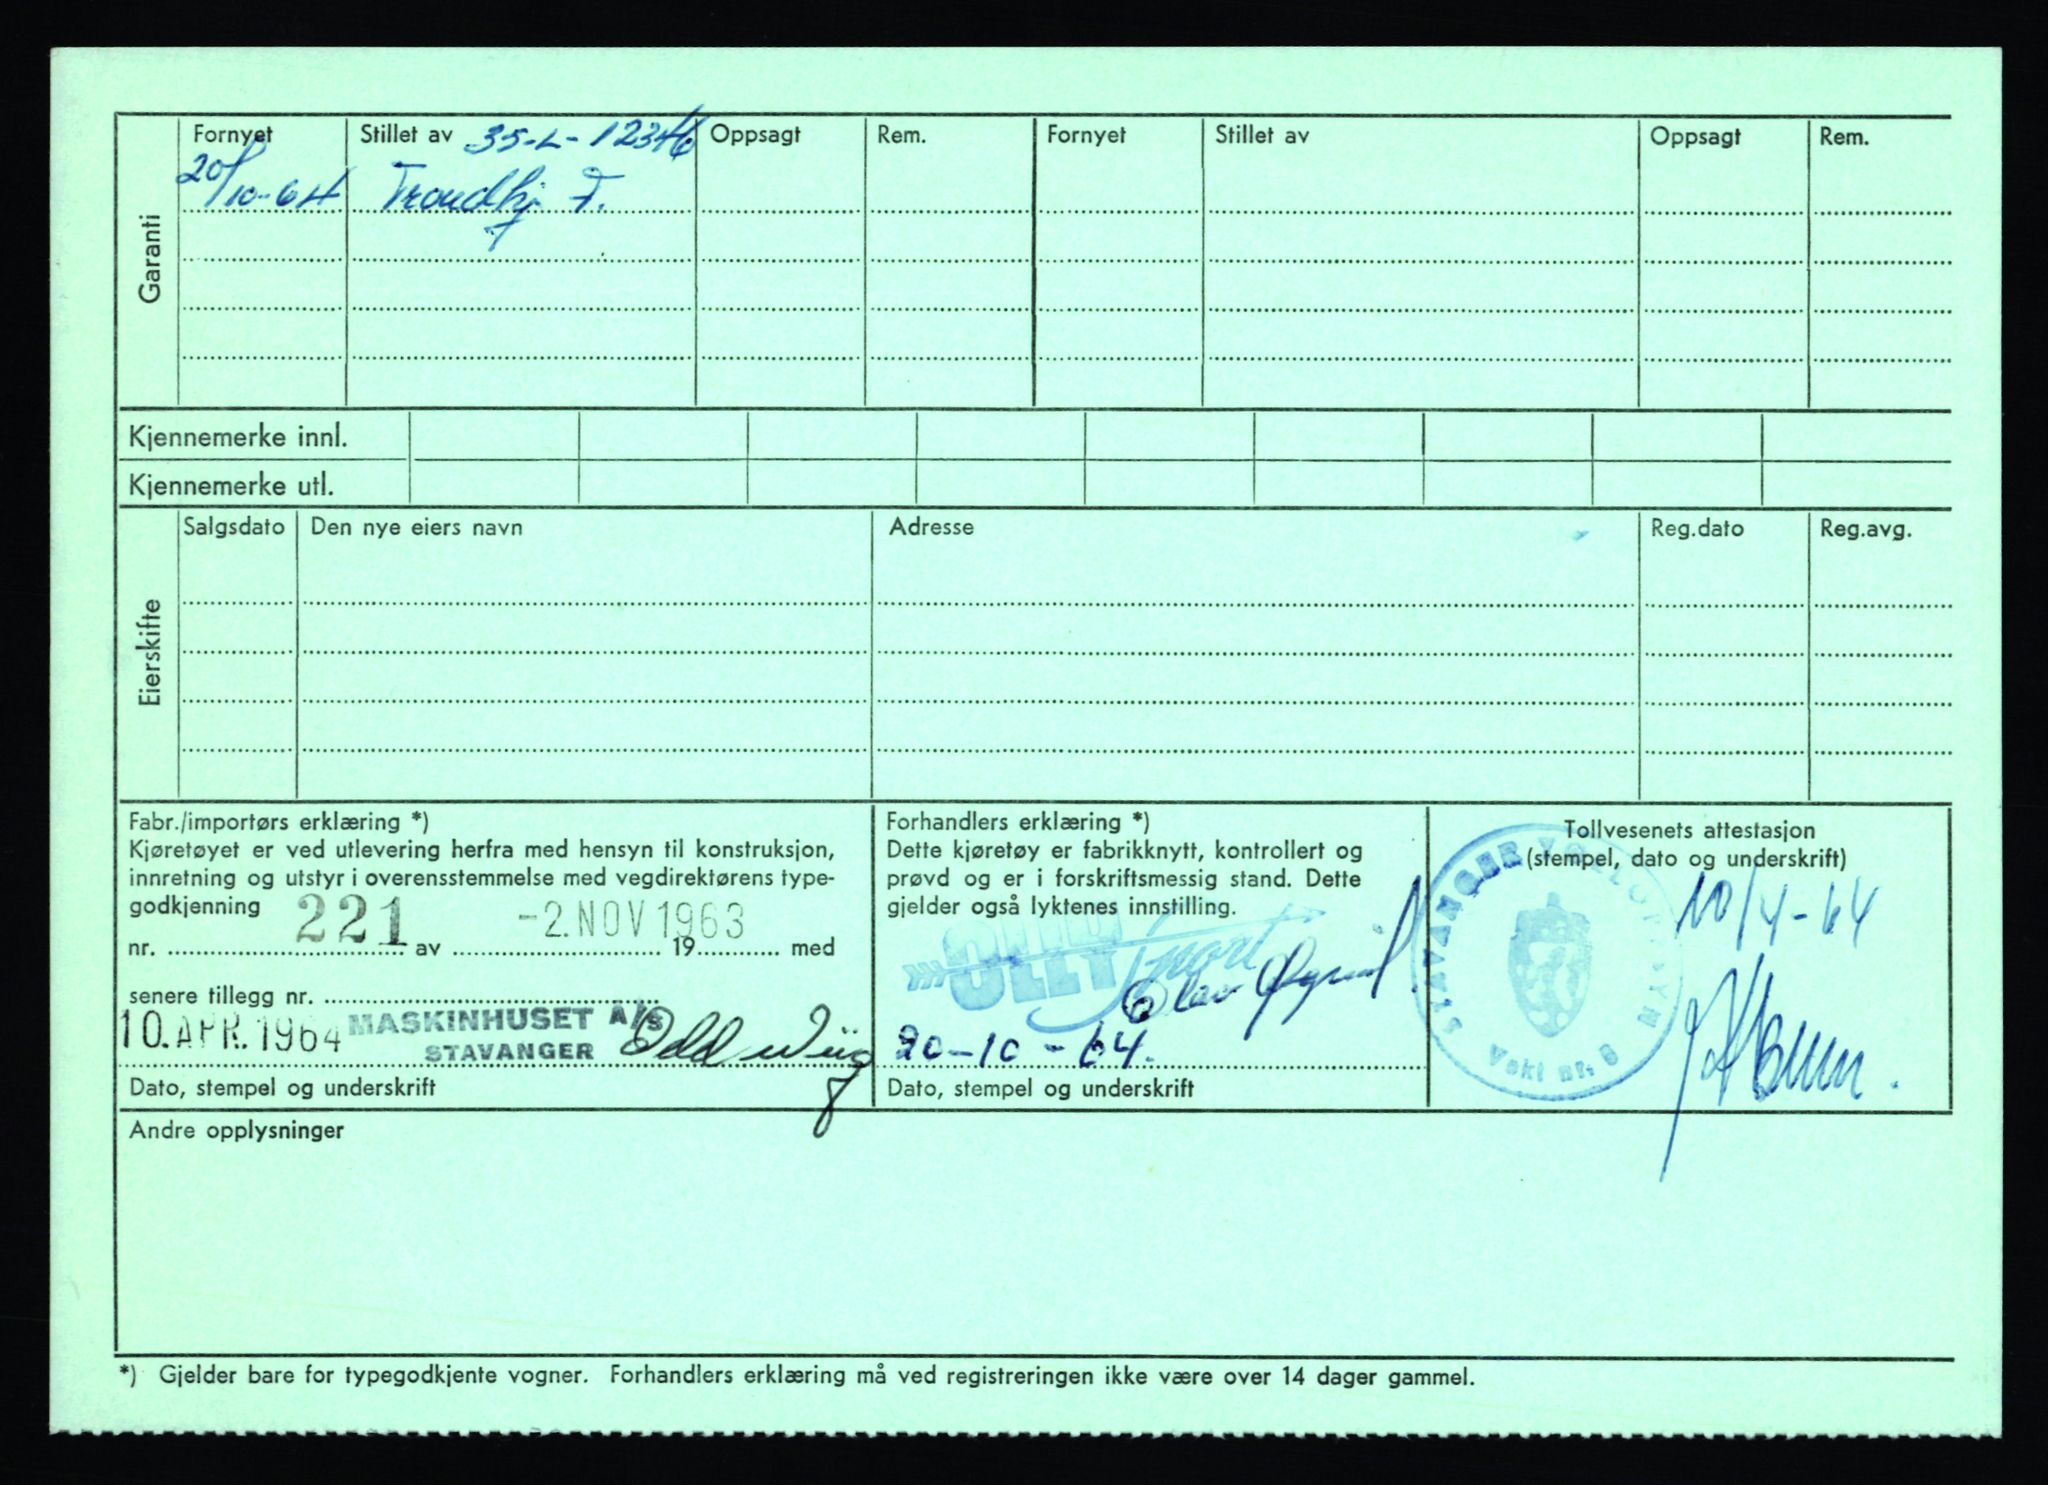 Garanti
Fornyet Stillet av 35-L-12346 Oppsagt Rem. Fornyet Stillet av Oppsagt Rem.
20/10-64 Trondhj. F.
Kjennemerke innl.
Kjennemerke utl.
Eierskifte
Salgsdato Den nye eiers navn Adresse Reg.dato Reg.avg.
Fabr./importørs erklæring *)
Kjøretøyet er ved utlevering herfra med hensyn til konstruksjon,
innretning og utstyr i overensstemmelse med vegdirektørens type-
godkjenning
nr. 221 av -2. NOV 1963 19 med
senere tillegg nr.
10. APR. 1964 MASKINHUSET A/S
STAVANGER Odd Wiig
Dato, stempel og underskrift
Forhandlers erklæring *)
Dette kjøretøy er fabrikknytt, kontrollert og
prøvd og er i forskriftsmessig stand. Dette
gjelder også lyktenes innstilling.
Sport
Olav
20-10-64.
Dato, stempel og underskrift
Tollvesenets attestasjon
(stempel, dato og underskrift)
10/4-64
STAVANGER TOLLOPPSYN
Vakt nr. 6
Andre opplysninger
*) Gjelder bare for typegodkjente vogner. Forhandlers erklæring må ved registreringen ikke være over 14 dager gammel.